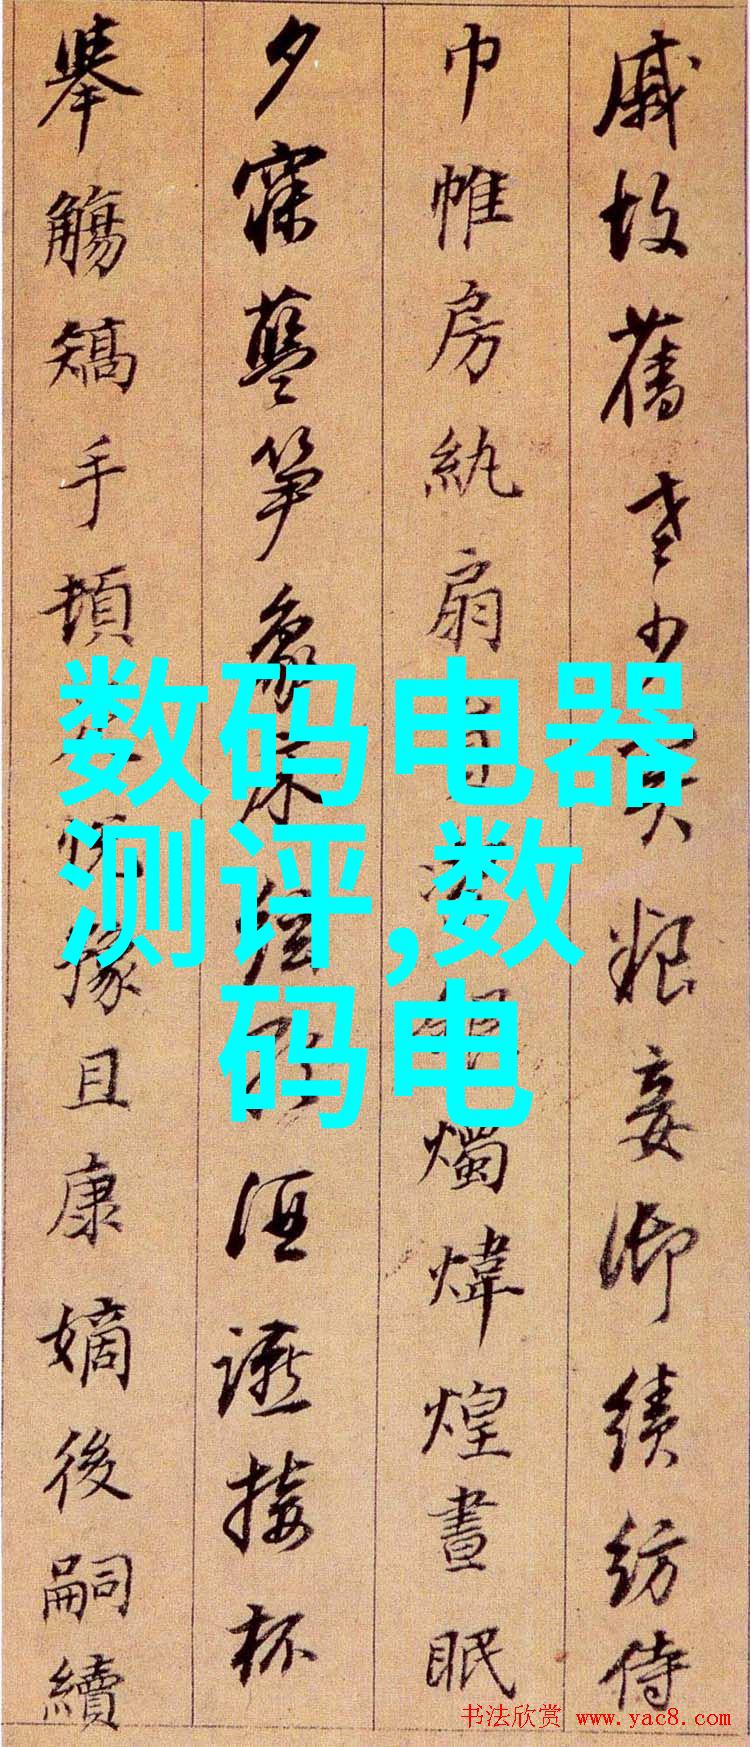 戚故舊老少異粮妾御績紡侍
巾帷房紈扇燭煒煌晝眠
夕寐藍笋象床絃歌酒讌接杯
舉觴矯手頓豫且康嫡後嗣續
数码电器
测评,数
码电
书法欣赏 www.yac8.com